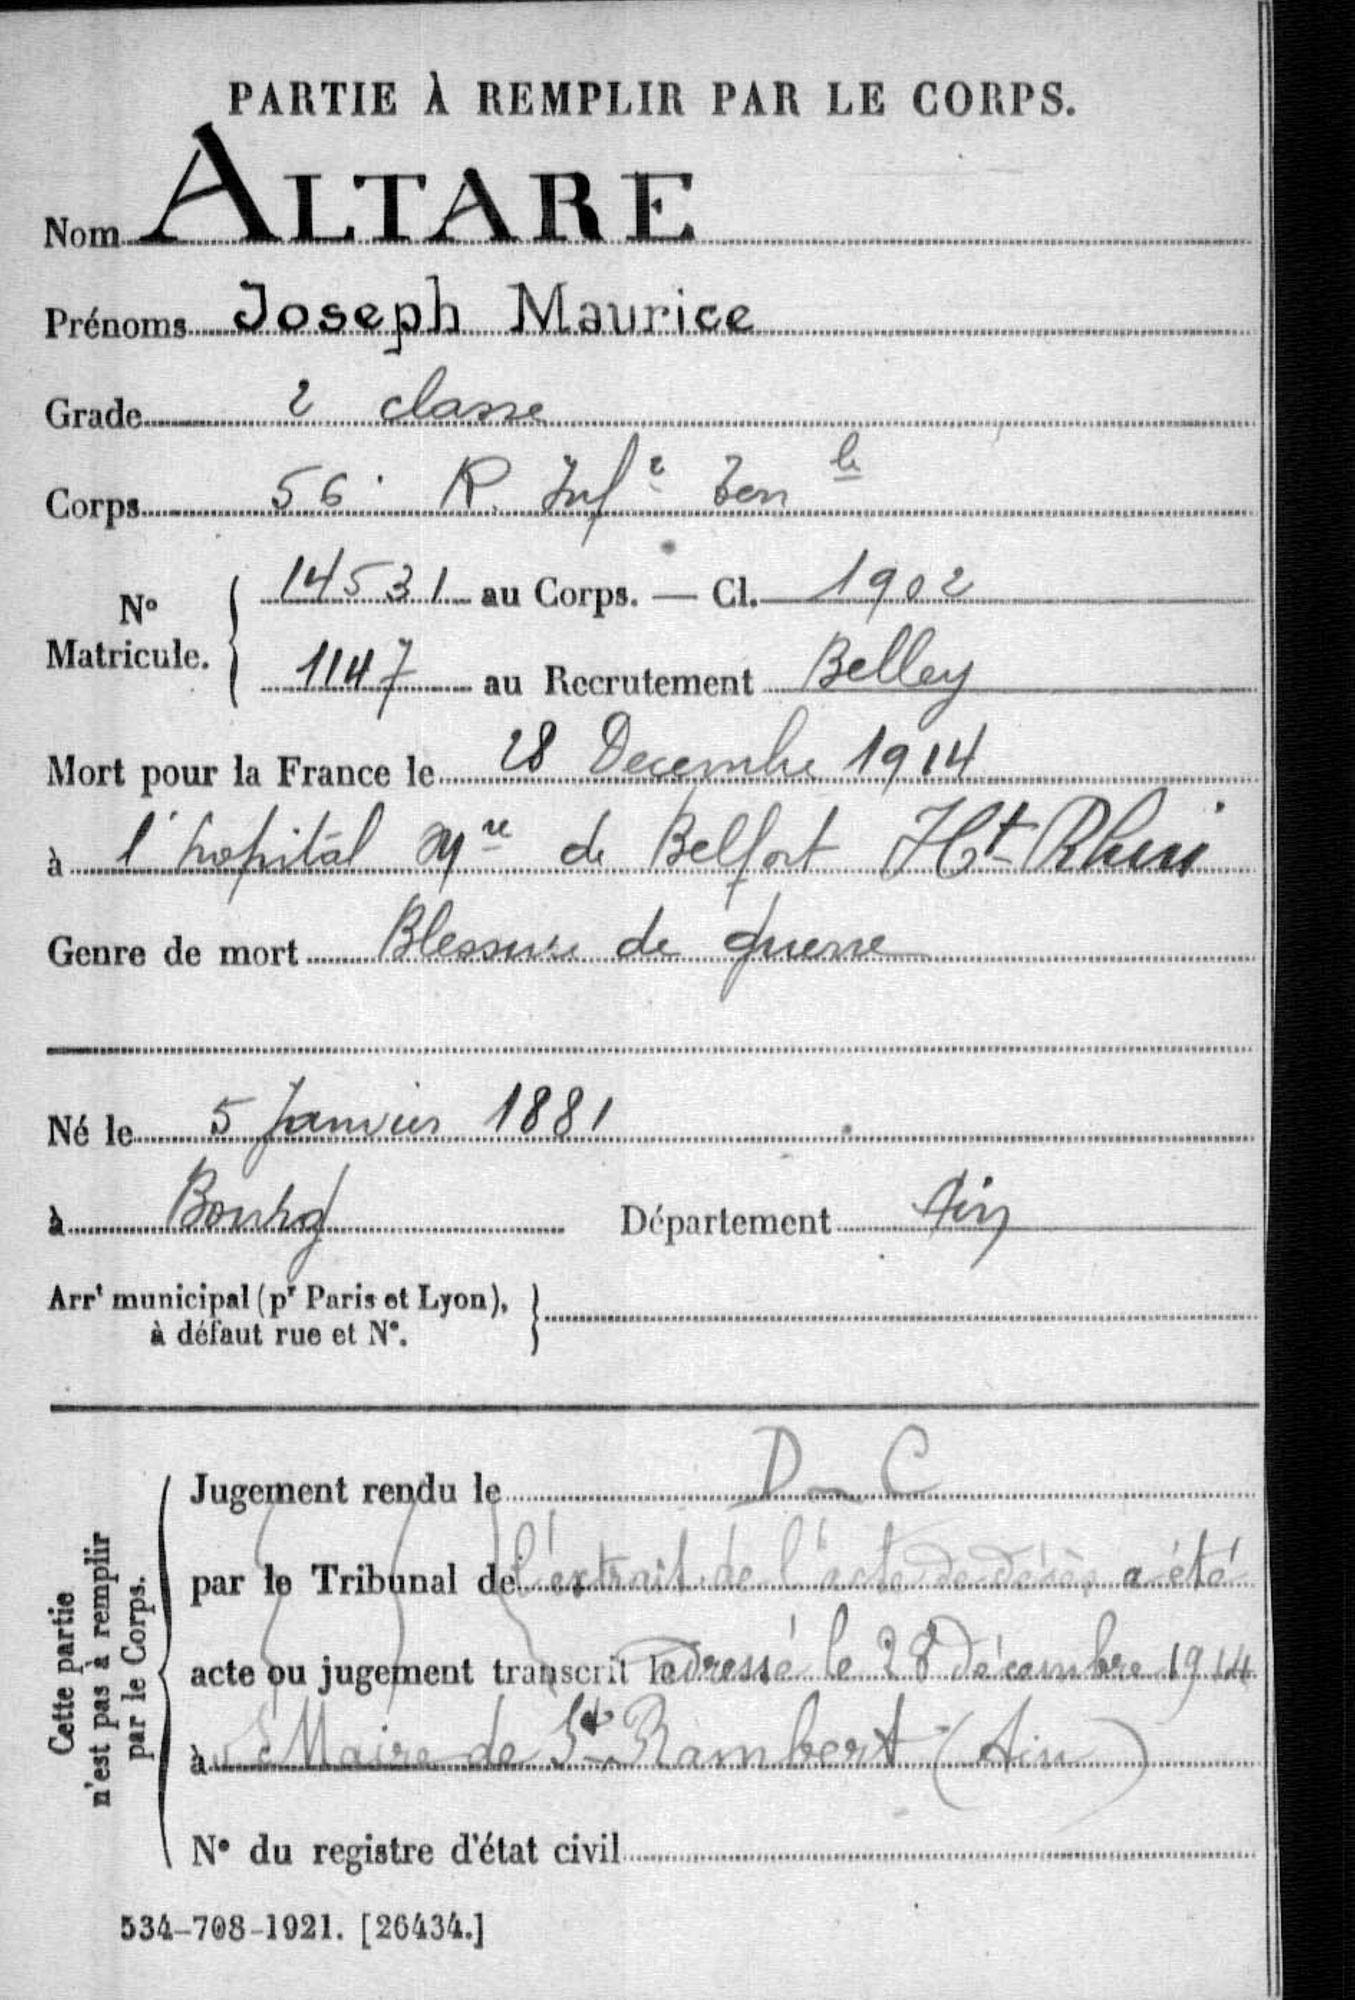 PARTIE À REMPLIR PAR LE CORPS.
Nom ALTARE
Prénoms Joseph Maurice
Grade 2 classe
Corps 56. R. Infe Terr le
No Matricule. { 14531 au Corps. — Cl. 1902
1147 au Recrutement Belley
Mort pour la France le 28 Decembre 1914
à l'hopital Mre de Belfort Ht-Rhin
Genre de mort Blessure de guerre
Né le 5 Janvier 1881
à Bourg Département Ain
Arrt municipal (pr Paris et Lyon), }
à défaut rue et N°.
Cette partie
n'est pas à remplir
par le Corps.
Jugement rendu le D C
par le Tribunal de l'extrait de l'acte de décès a été
acte ou jugement transcrit le adressé le 28 décembre 1914
à Maire de St-Rambert (Ain)
N° du registre d'état civil
534-708-1921. [26434.]